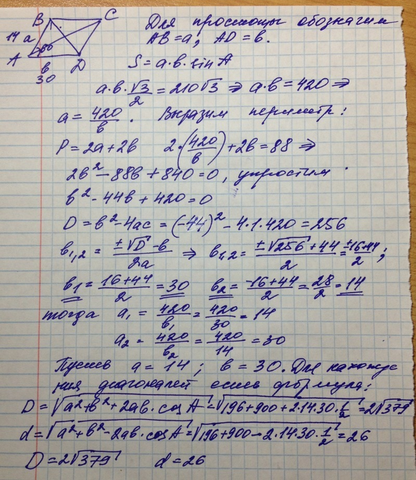 B C
14 a
A 60 D
b
30
Для простоты обозначим
AB=a; AD=b.
S=a·b·sin A
a·b·√3/2=210√3 ⇒ a·b=420 ⇒
a=420/b. Выразим периметр:
P=2a+2b 2·(420/b)+2b=88 ⇒
2b²-88b+840=0, упростим
b²-44b+420=0
D=b²-4ac=(-44)²-4·1·420=256
b₁,₂=(±√D-b)/2a ⇒ b₁,₂=(±√256+44)/2=(±16+44)/2;
b₁=(16+44)/2=30 b₂=(-16+44)/2=28/2=14
тогда a₁=420/b₁=420/30=14
a₂=420/b₂=420/14=30
Пусть a=14; b=30. Для нахожде-
ния диагоналей есть формула:
D=√(a²+b²+2ab·cos A)=√(196+900+2·14·30·1/2)=2√379
d=√(a²+b²-2ab·cos A)=√(196+900-2·14·30·1/2)=26
D=2√379 d=26